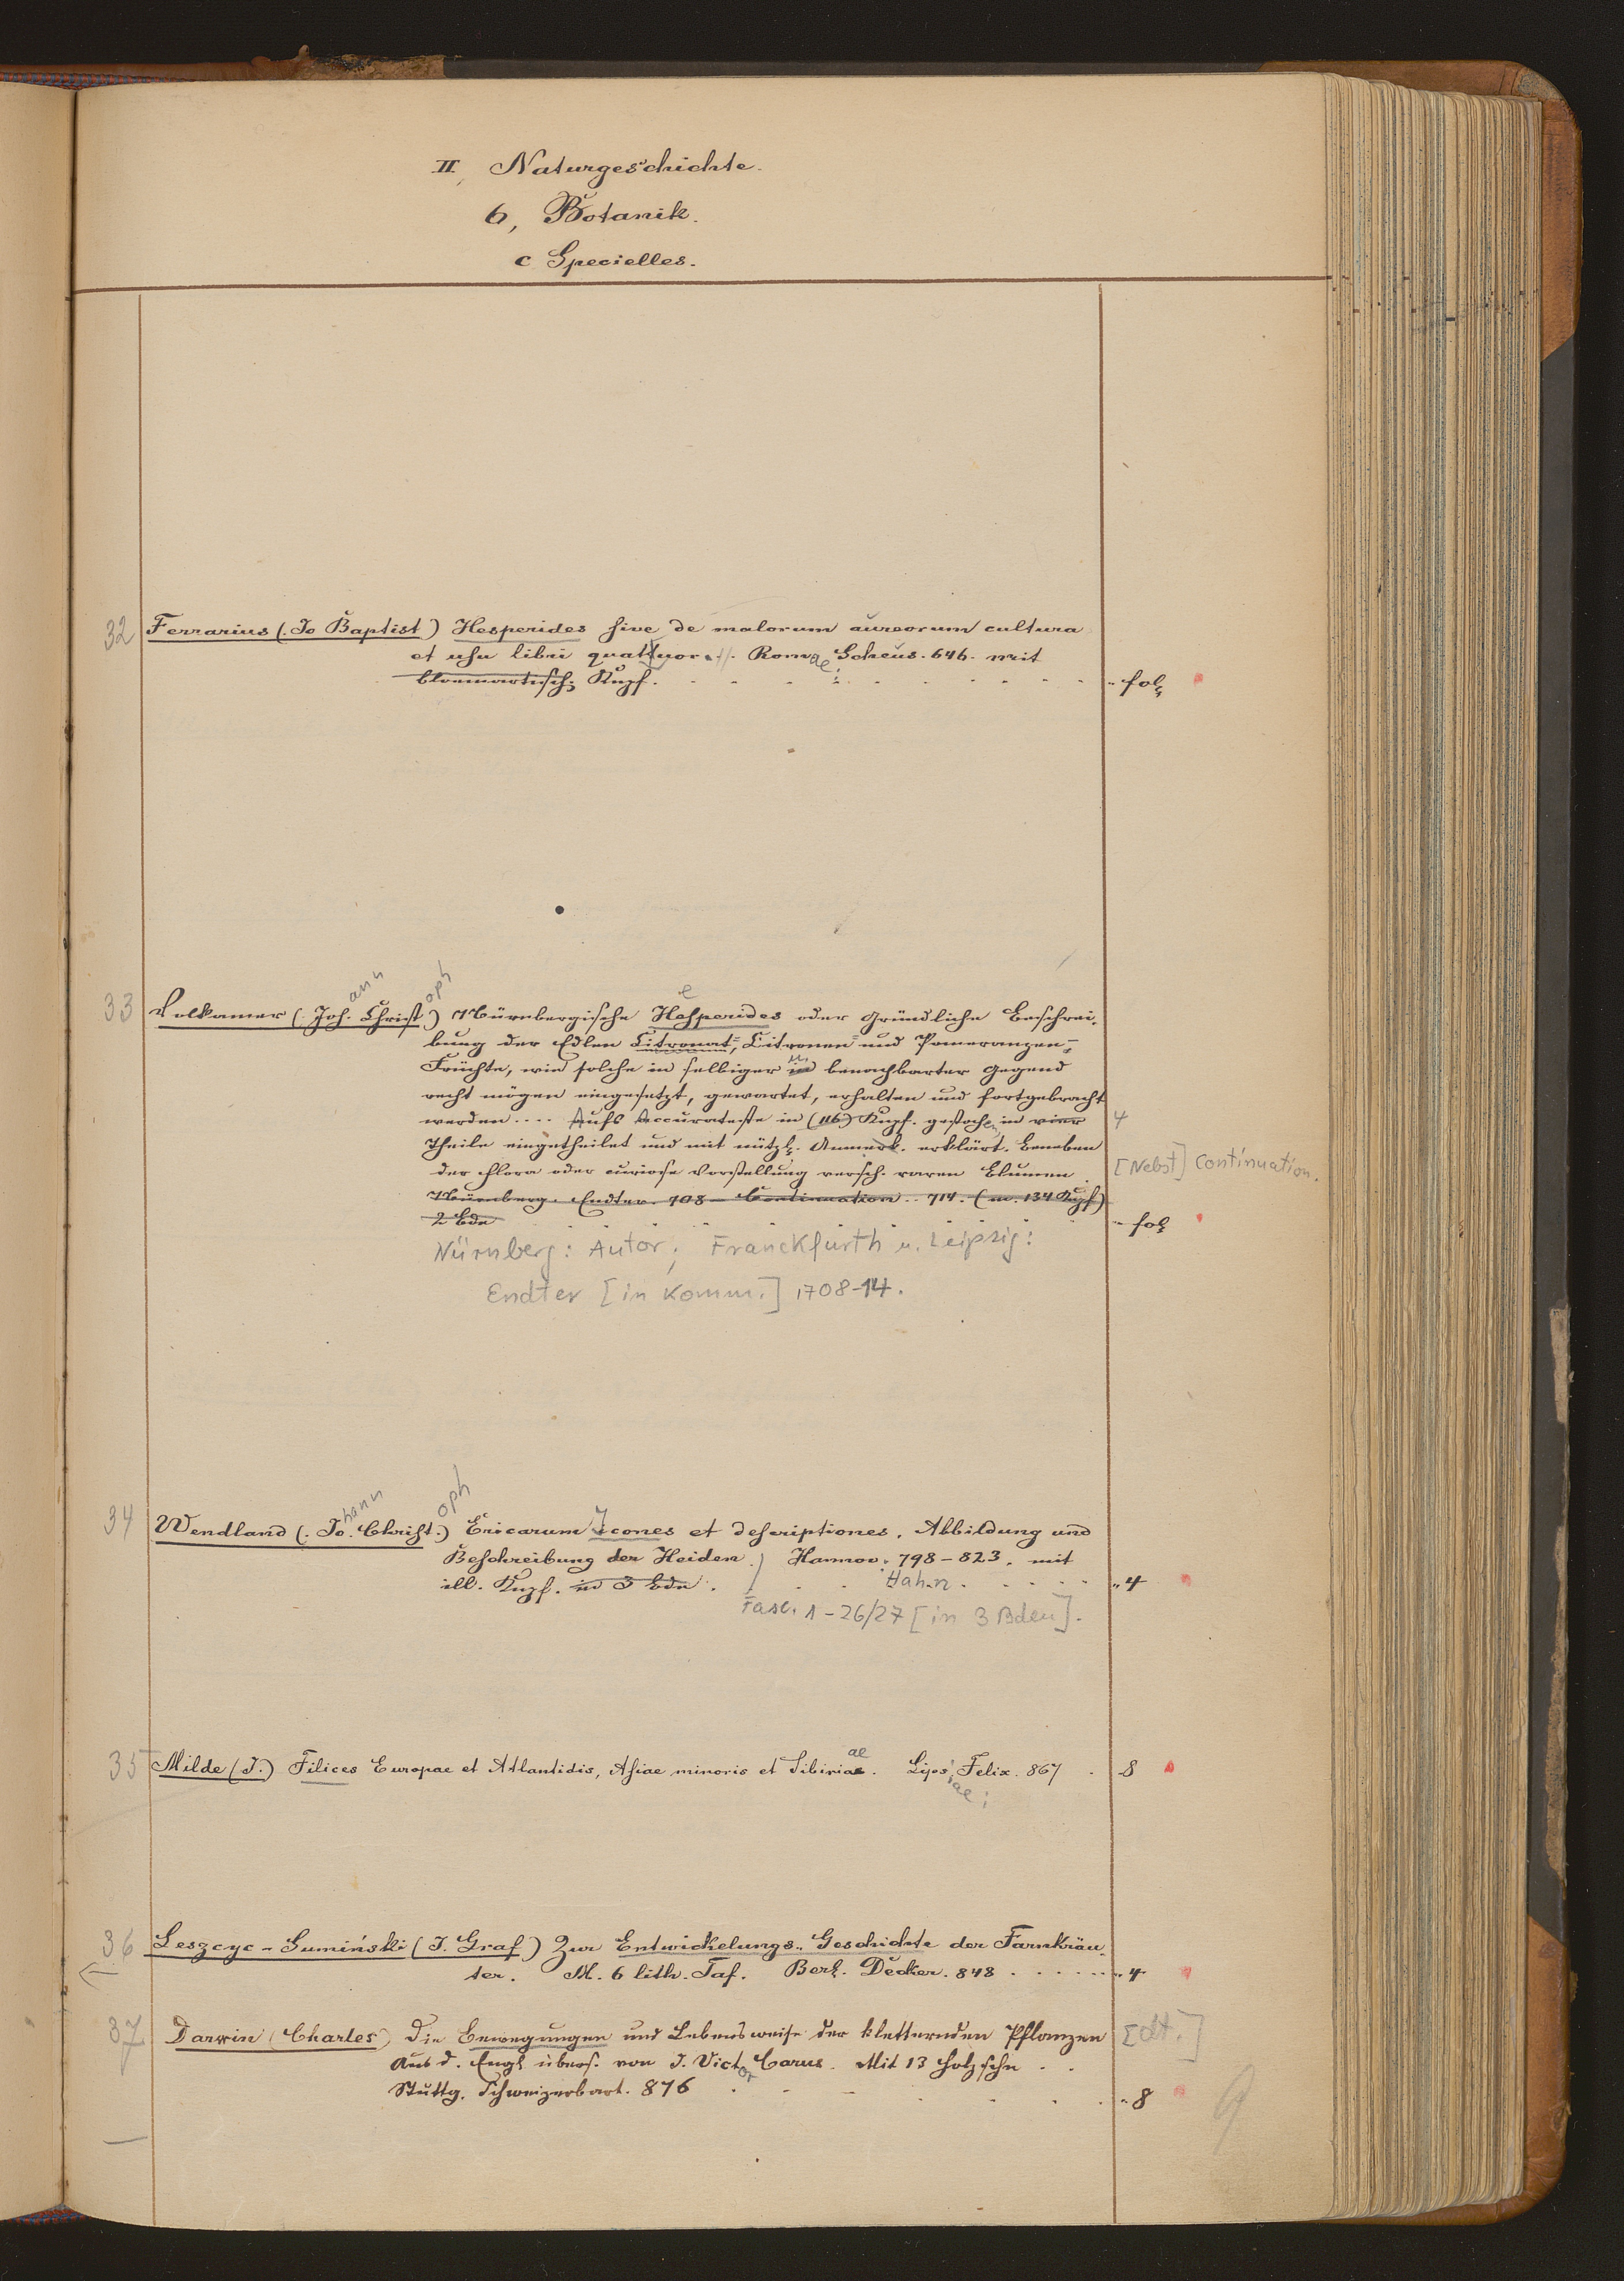 II, Naturgeschichte.
6, Botanik.
c Specielles.
32 Ferrarius (. Jo Baptist) Hesperides sive de malorum aureorum cultura
et usu libri quattuor. Romae; Scheus. 646. mit
bloemartisch. Kupf. fol.
33 Volkamer (. Johann Christoph) Nürnbergische Hesperides oder Gründliche Beschrei-
bung der Edlen Citronat-, Citronen- und Pomeranzen-
Früchte, wie solche in selbiger u benachbarter Gegend
recht mögen eingesetzt, gewartet, erhalten und fortgebracht
werden .... Aufs Accurateste in (116) Kupf. gestochen, in vier 4
Theile eingetheilet und mit nützl. Anmerk. erklärt. Beneben
der Flora oder curiose Vorstellung versch. raren Blumen. [Nebst] Continuation.
Nürnberg. Endter. 708 – Continuation .. 714. (m. 134 Kupf)
2 Bde fol.
Nürnberg: Autor; Franckfurth u. Leipzig:
Endter [in Komm.] 1708-14.
34 Wendland (. Johann Christoph.) Ericarum Icones et descriptiones. Abbildung und
Beschreibung der Heiden. Hannov. 798 – 823. mit
ill. Kupf. in 3 Bde. Hahn. 4
Fasc. 1 – 26/27 [in 3 Bden].
35 Milde (J.) Filices Europae et Atlantidis, Asiae minoris et Sibiriae. Lipsiae; Felix. 867 8
36 Leszcyc-Sumiński (J. Graf) Zur Entwickelungs-Geschichte der Farnkräu-
ter. M. 6 lith. Taf. Berl. Decker. 848 4
37 Darwin (Charles) Die Bewegungen und Lebensweise der kletternden Pflanzen [dt.]
Aus d. Engl übers. von J. Victor Carus. Mit 13 Holzschn
Stuttg. Schweizerbart. 876 8
9